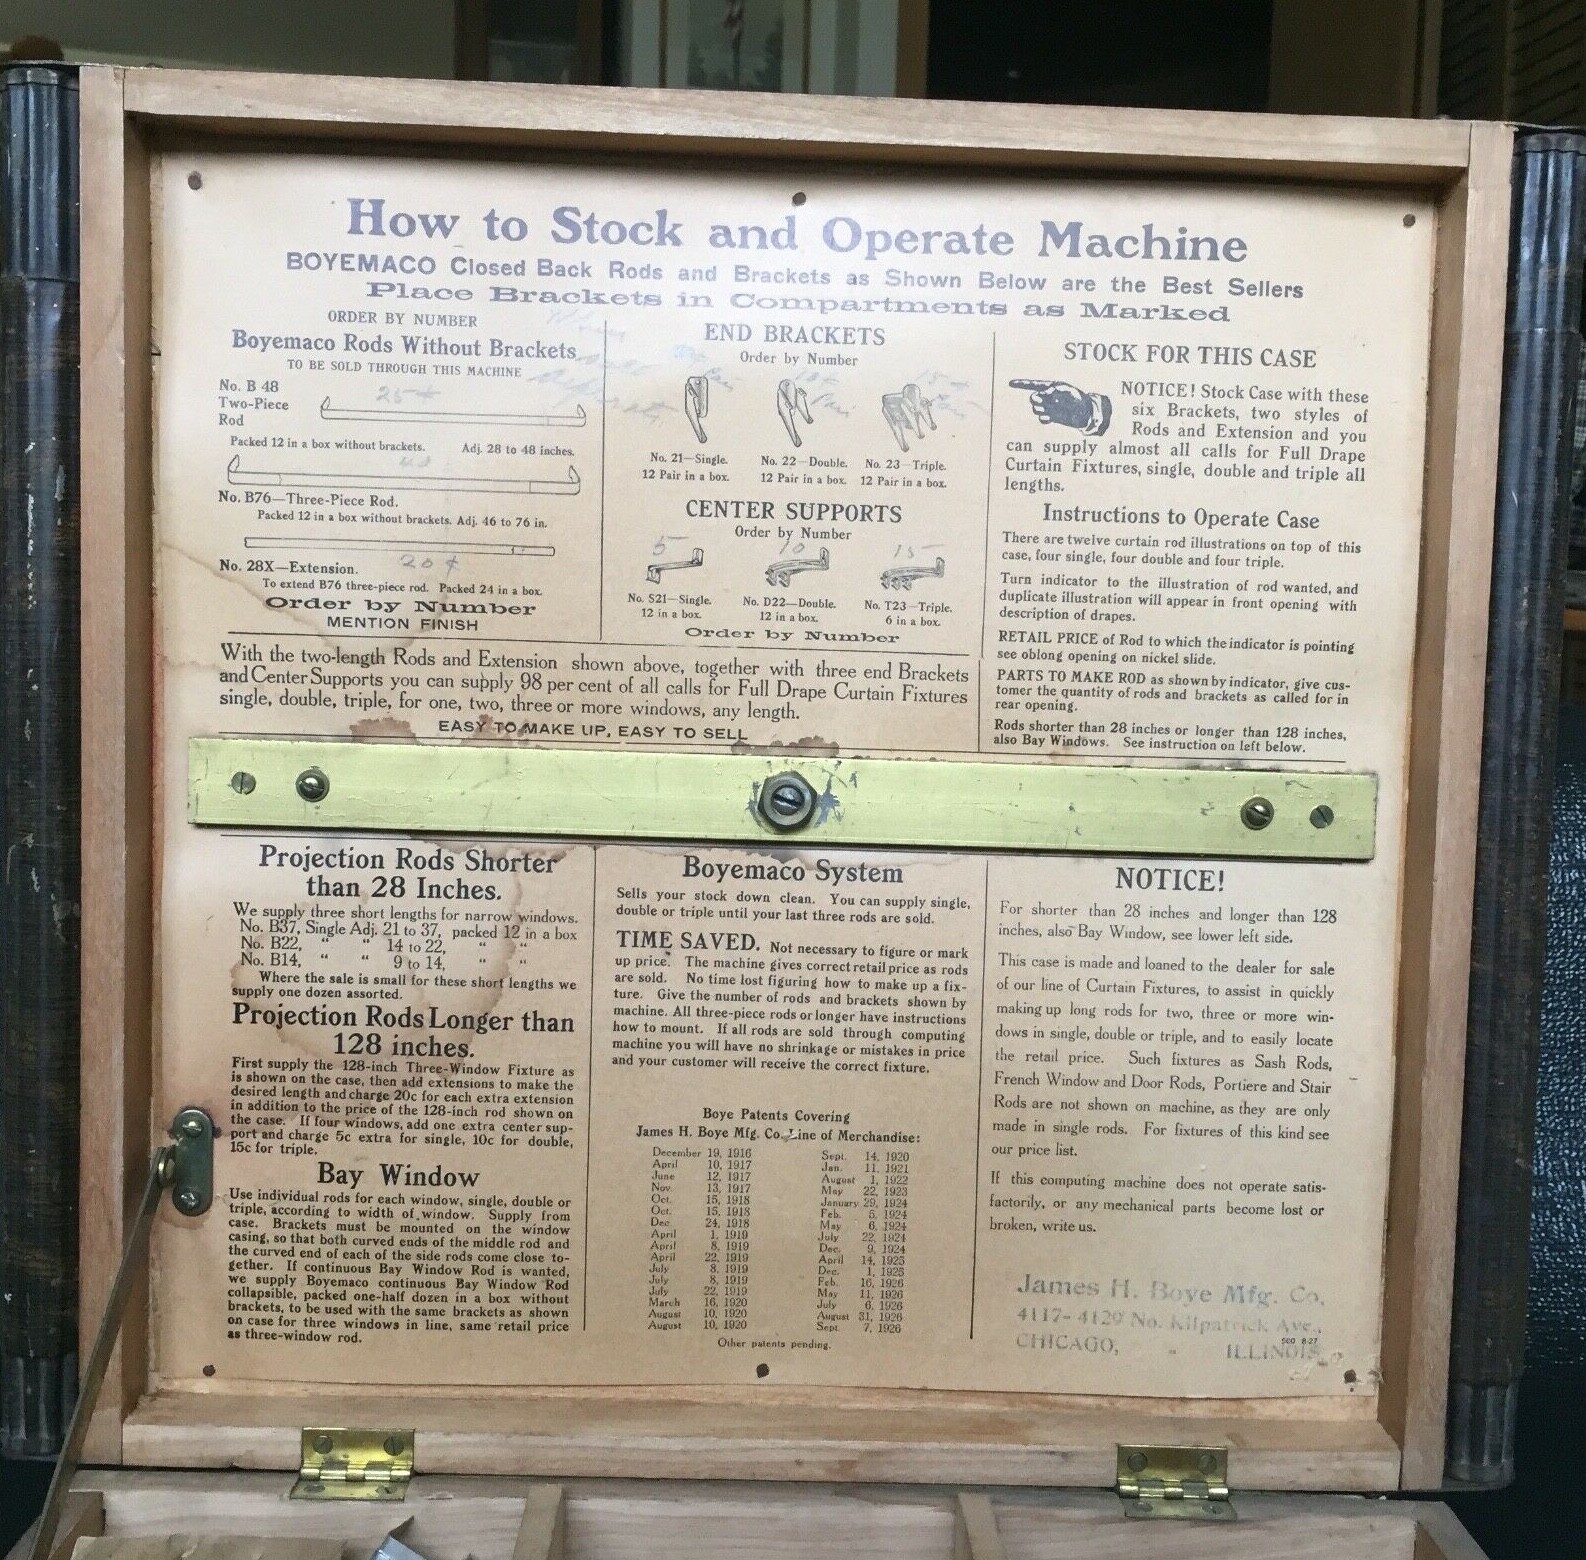 How to Stock and Operate Machine
BOYEMACO Closed Back Rods and Brackets as Shown Below are the Best Sellers
Place Brackets in Compartments as Marked
ORDER BY NUMBER
Boyemaco Rods Without Brackets
TO BE SOLD THROUGH THIS MACHINE
No. B 48
Two-Piece
Rod
25¢
Packed 12 in a box without brackets. Adj. 28 to 48 inches.
No. B76—Three-Piece Rod.
Packed 12 in a box without brackets. Adj. 46 to 76 in.
No. 28X—Extension.
20¢
To extend B76 three-piece rod. Packed 24 in a box.
Order by Number
MENTION FINISH
END BRACKETS
Order by Number
No. 21—Single.
12 Pair in a box.
No. 22—Double.
12 Pair in a box.
No. 23—Triple.
12 Pair in a box.
CENTER SUPPORTS
Order by Number
5 10 15
No. S21—Single.
12 in a box.
No. D22—Double.
12 in a box.
No. T23—Triple.
6 in a box.
Order by Number
STOCK FOR THIS CASE
NOTICE! Stock Case with these
six Brackets, two styles of
Rods and Extension and you
can supply almost all calls for Full Drape
Curtain Fixtures, single, double and triple all
lengths.
Instructions to Operate Case
There are twelve curtain rod illustrations on top of this
case, four single, four double and four triple.
Turn indicator to the illustration of rod wanted, and
duplicate illustration will appear in front opening with
description of drapes.
RETAIL PRICE of Rod to which the indicator is pointing
see oblong opening on nickel slide.
PARTS TO MAKE ROD as shown by indicator, give cus-
tomer the quantity of rods and brackets as called for in
rear opening.
Rods shorter than 28 inches or longer than 128 inches,
also Bay Windows. See instruction on left below.
With the two-length Rods and Extension shown above, together with three end Brackets
and Center Supports you can supply 98 per cent of all calls for Full Drape Curtain Fixtures
single, double, triple, for one, two, three or more windows, any length.
EASY TO MAKE UP, EASY TO SELL
Projection Rods Shorter
than 28 Inches.
We supply three short lengths for narrow windows.
No. B37, Single Adj. 21 to 37, packed 12 in a box
No. B22, “ “ 14 to 22, “ “
No. B14, “ “ 9 to 14, “ “
Where the sale is small for these short lengths we
supply one dozen assorted.
Projection Rods Longer than
128 inches.
First supply the 128-inch Three-Window Fixture as
is shown on the case, then add extensions to make the
desired length and charge 20c for each extra extension
in addition to the price of the 128-inch rod shown on
the case. If four windows, add one extra center sup-
port and charge 5c extra for single, 10c for double,
15c for triple.
Bay Window
Use individual rods for each window, single, double or
triple, according to width of window. Supply from
case. Brackets must be mounted on the window
casing, so that both curved ends of the middle rod and
the curved end of each of the side rods come close to-
gether. If continuous Bay Window Rod is wanted,
we supply Boyemaco continuous Bay Window Rod
collapsible, packed one-half dozen in a box without
brackets, to be used with the same brackets as shown
on case for three windows in line, same retail price
as three-window rod.
Boyemaco System
Sells your stock down clean. You can supply single,
double or triple until your last three rods are sold.
TIME SAVED. Not necessary to figure or mark
up price. The machine gives correct retail price as rods
are sold. No time lost figuring how to make up a fix-
ture. Give the number of rods and brackets shown by
machine. All three-piece rods or longer have instructions
how to mount. If all rods are sold through computing
machine you will have no shrinkage or mistakes in price
and your customer will receive the correct fixture.
Boye Patents Covering
James H. Boye Mfg. Co. Line of Merchandise:
December 19, 1916
April 10, 1917
June 12, 1917
Nov. 13, 1917
Oct. 15, 1918
Oct. 15, 1918
Dec. 24, 1918
April 1, 1919
April 8, 1919
April 22, 1919
July 8, 1919
July 8, 1919
July 22, 1919
March 16, 1920
August 10, 1920
August 10, 1920
Sept. 14, 1920
Jan. 11, 1921
August 1, 1922
May 22, 1923
January 29, 1924
Feb. 5, 1924
May 6, 1924
July 22, 1924
Dec. 9, 1924
April 14, 1925
Dec. 1, 1925
Feb. 16, 1926
May 11, 1926
July 6, 1926
August 31, 1926
Sept. 7, 1926
Other patents pending.
NOTICE!
For shorter than 28 inches and longer than 128
inches, also Bay Window, see lower left side.
This case is made and loaned to the dealer for sale
of our line of Curtain Fixtures, to assist in quickly
making up long rods for two, three or more win-
dows in single, double or triple, and to easily locate
the retail price. Such fixtures as Sash Rods,
French Window and Door Rods, Portiere and Stair
Rods are not shown on machine, as they are only
made in single rods. For fixtures of this kind see
our price list.
If this computing machine does not operate satis-
factorily, or any mechanical parts become lost or
broken, write us.
James H. Boye Mfg. Co.
4117-4129 No. Kilpatrick Ave.,
500 8-27
CHICAGO, - ILLINOIS